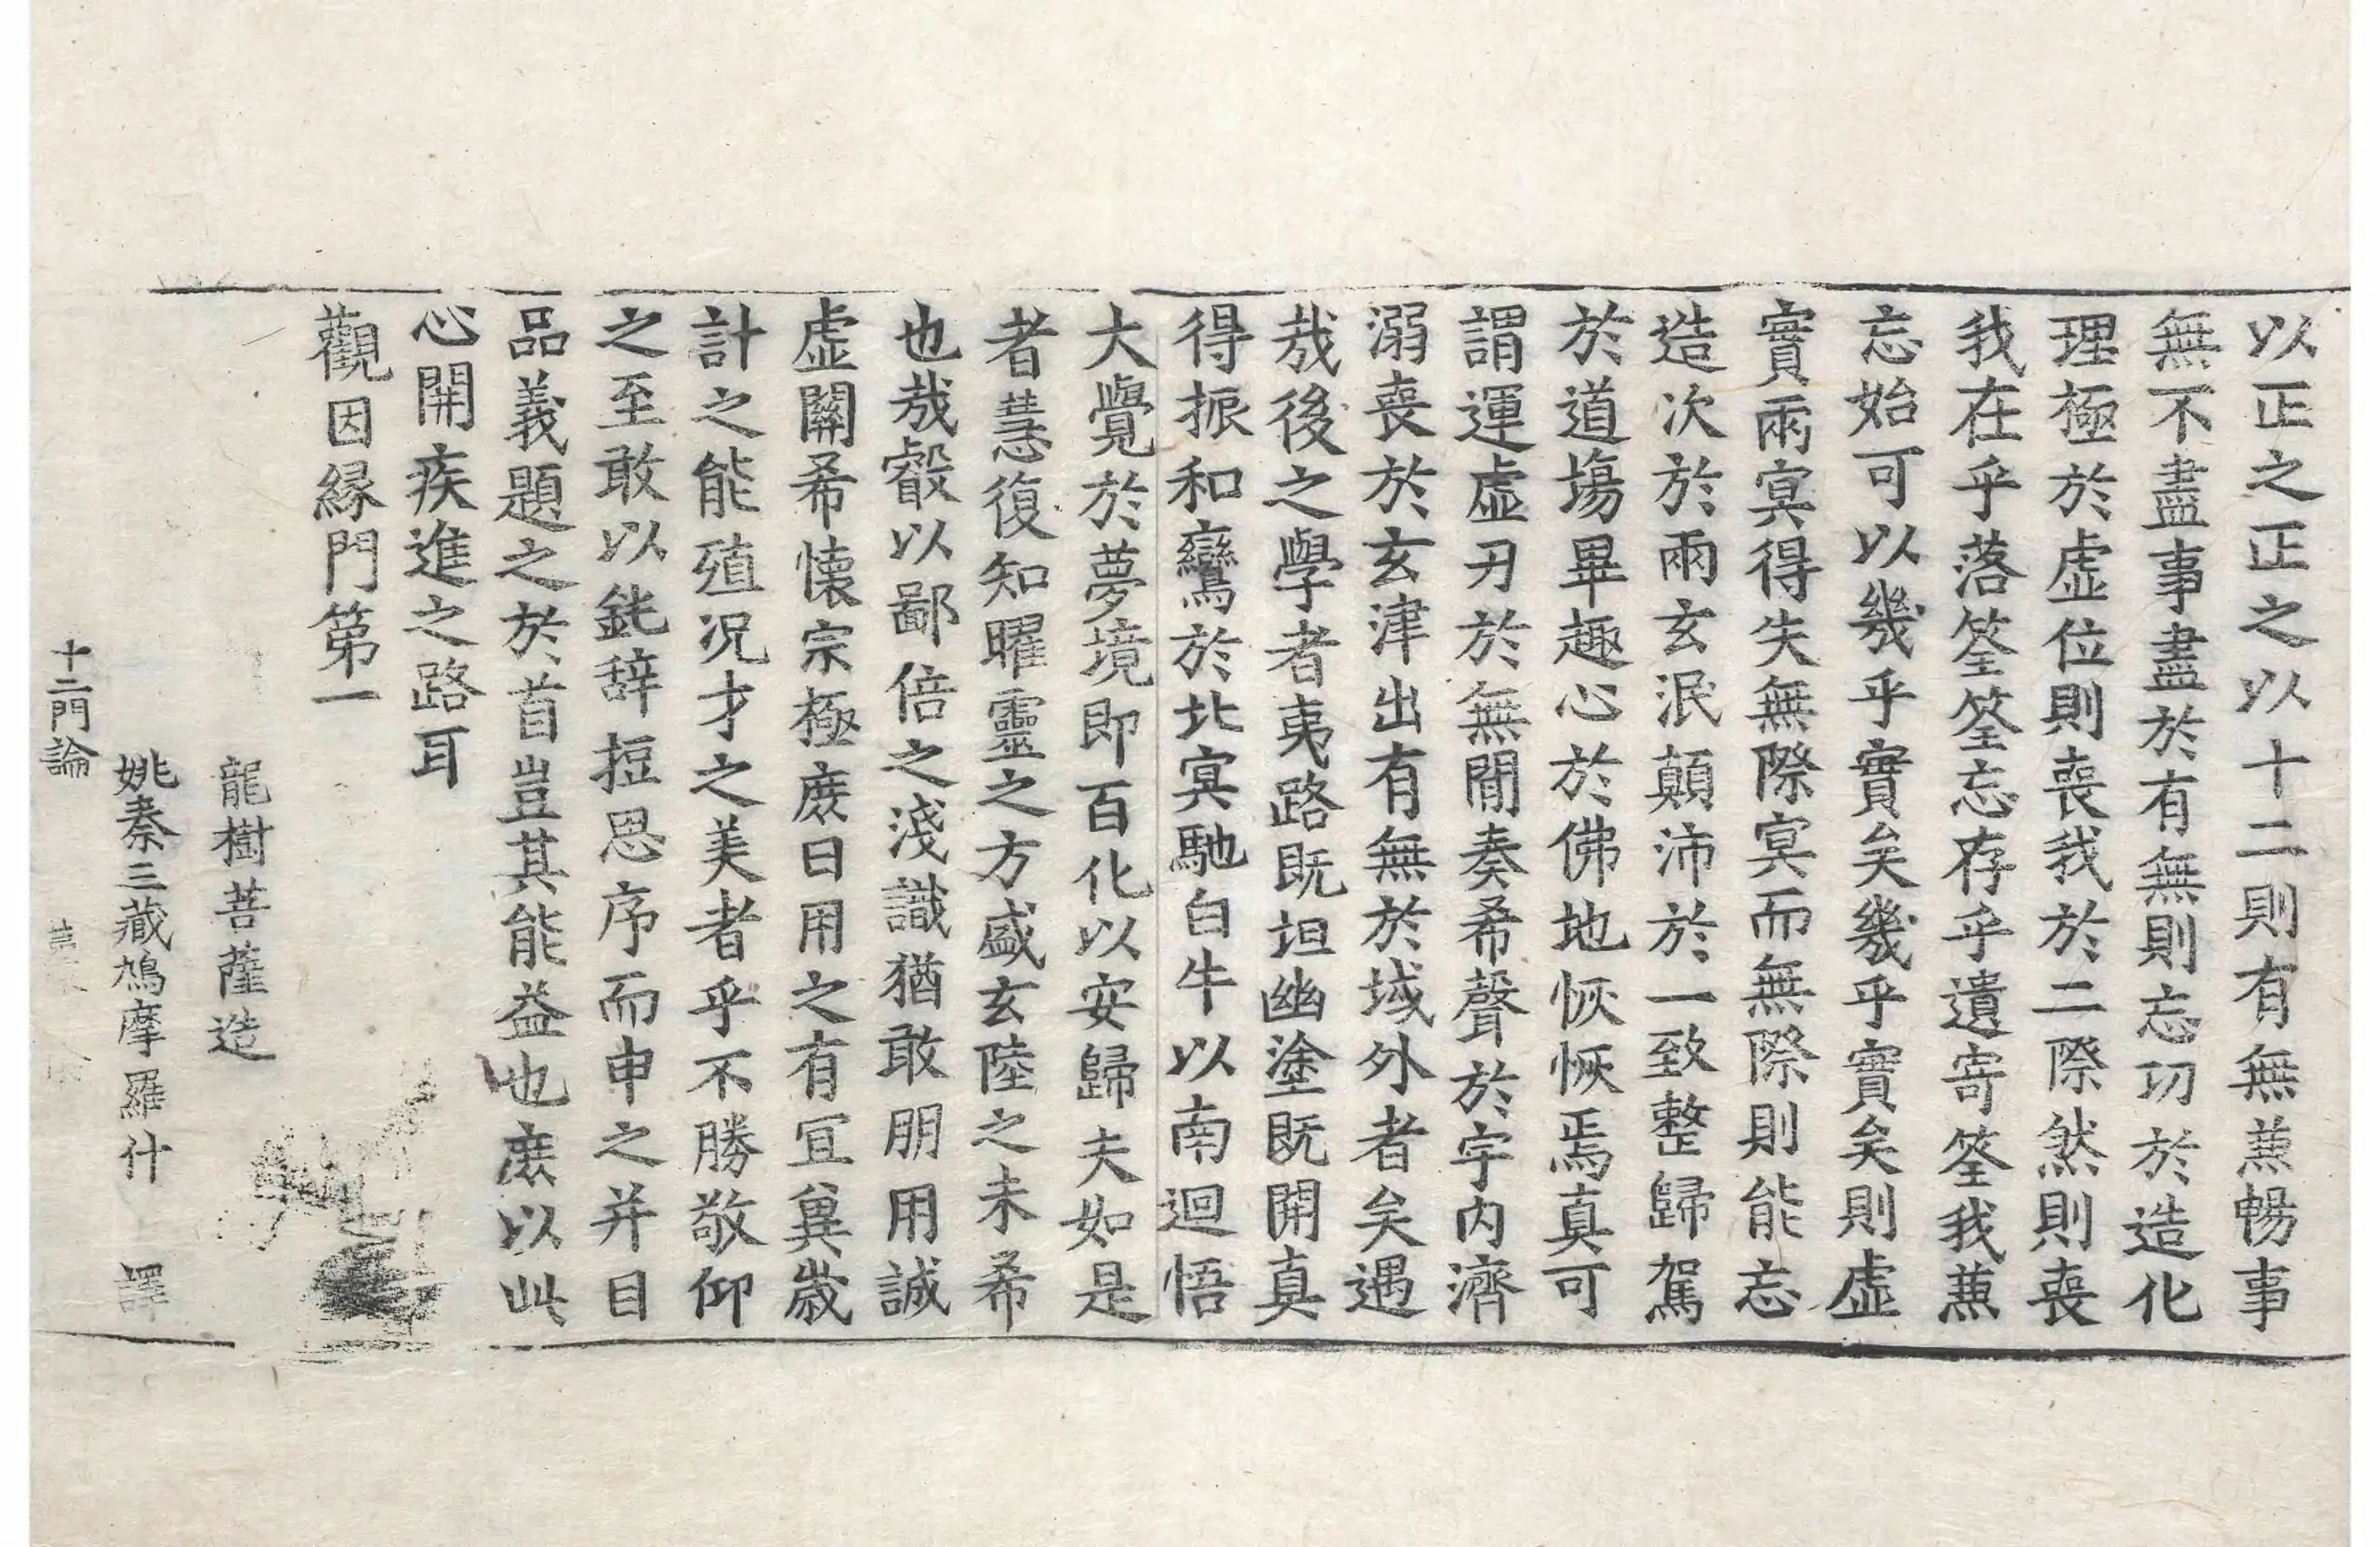 以正之正之以十二則有無蕪暢事
無不盡事盡於有無則忘功於造化
理極於虛位則喪我於二際然則喪
我在乎落筌筌忘存乎遺寄筌我蕪
忘始可以幾乎實矣幾乎實矣則虛
實兩冥得失無際冥而無際則能忘
造次於兩玄泯顛沛於一致整歸駕
於道塲畢趣心於佛地恢恢焉真可
謂運虛刃於無閒奏希聲於宇內濟
溺喪於玄津出有無於域外者矣遇
㢤後之學者夷路既坦幽塗既開真
得振和鸞於北冥馳白牛以南迴悟
大覺於夢境即百化以安歸夫如是
者𢡟復知曜靈之方盛玄陸之未希
也㢤叡以鄙倍之淺識猶敢朋用誠
虛關希懷宗極庶日用之有冝冀歲
計之能殖况才之美者乎不勝敬仰
之至敢以鈍辞短思序而申之并目
品義題之於首豈其能益也庶以此
心開疾進之路耳
觀因縁門第一
龍樹菩薩造
姚秦三藏鳩摩羅什 譯
十二門論